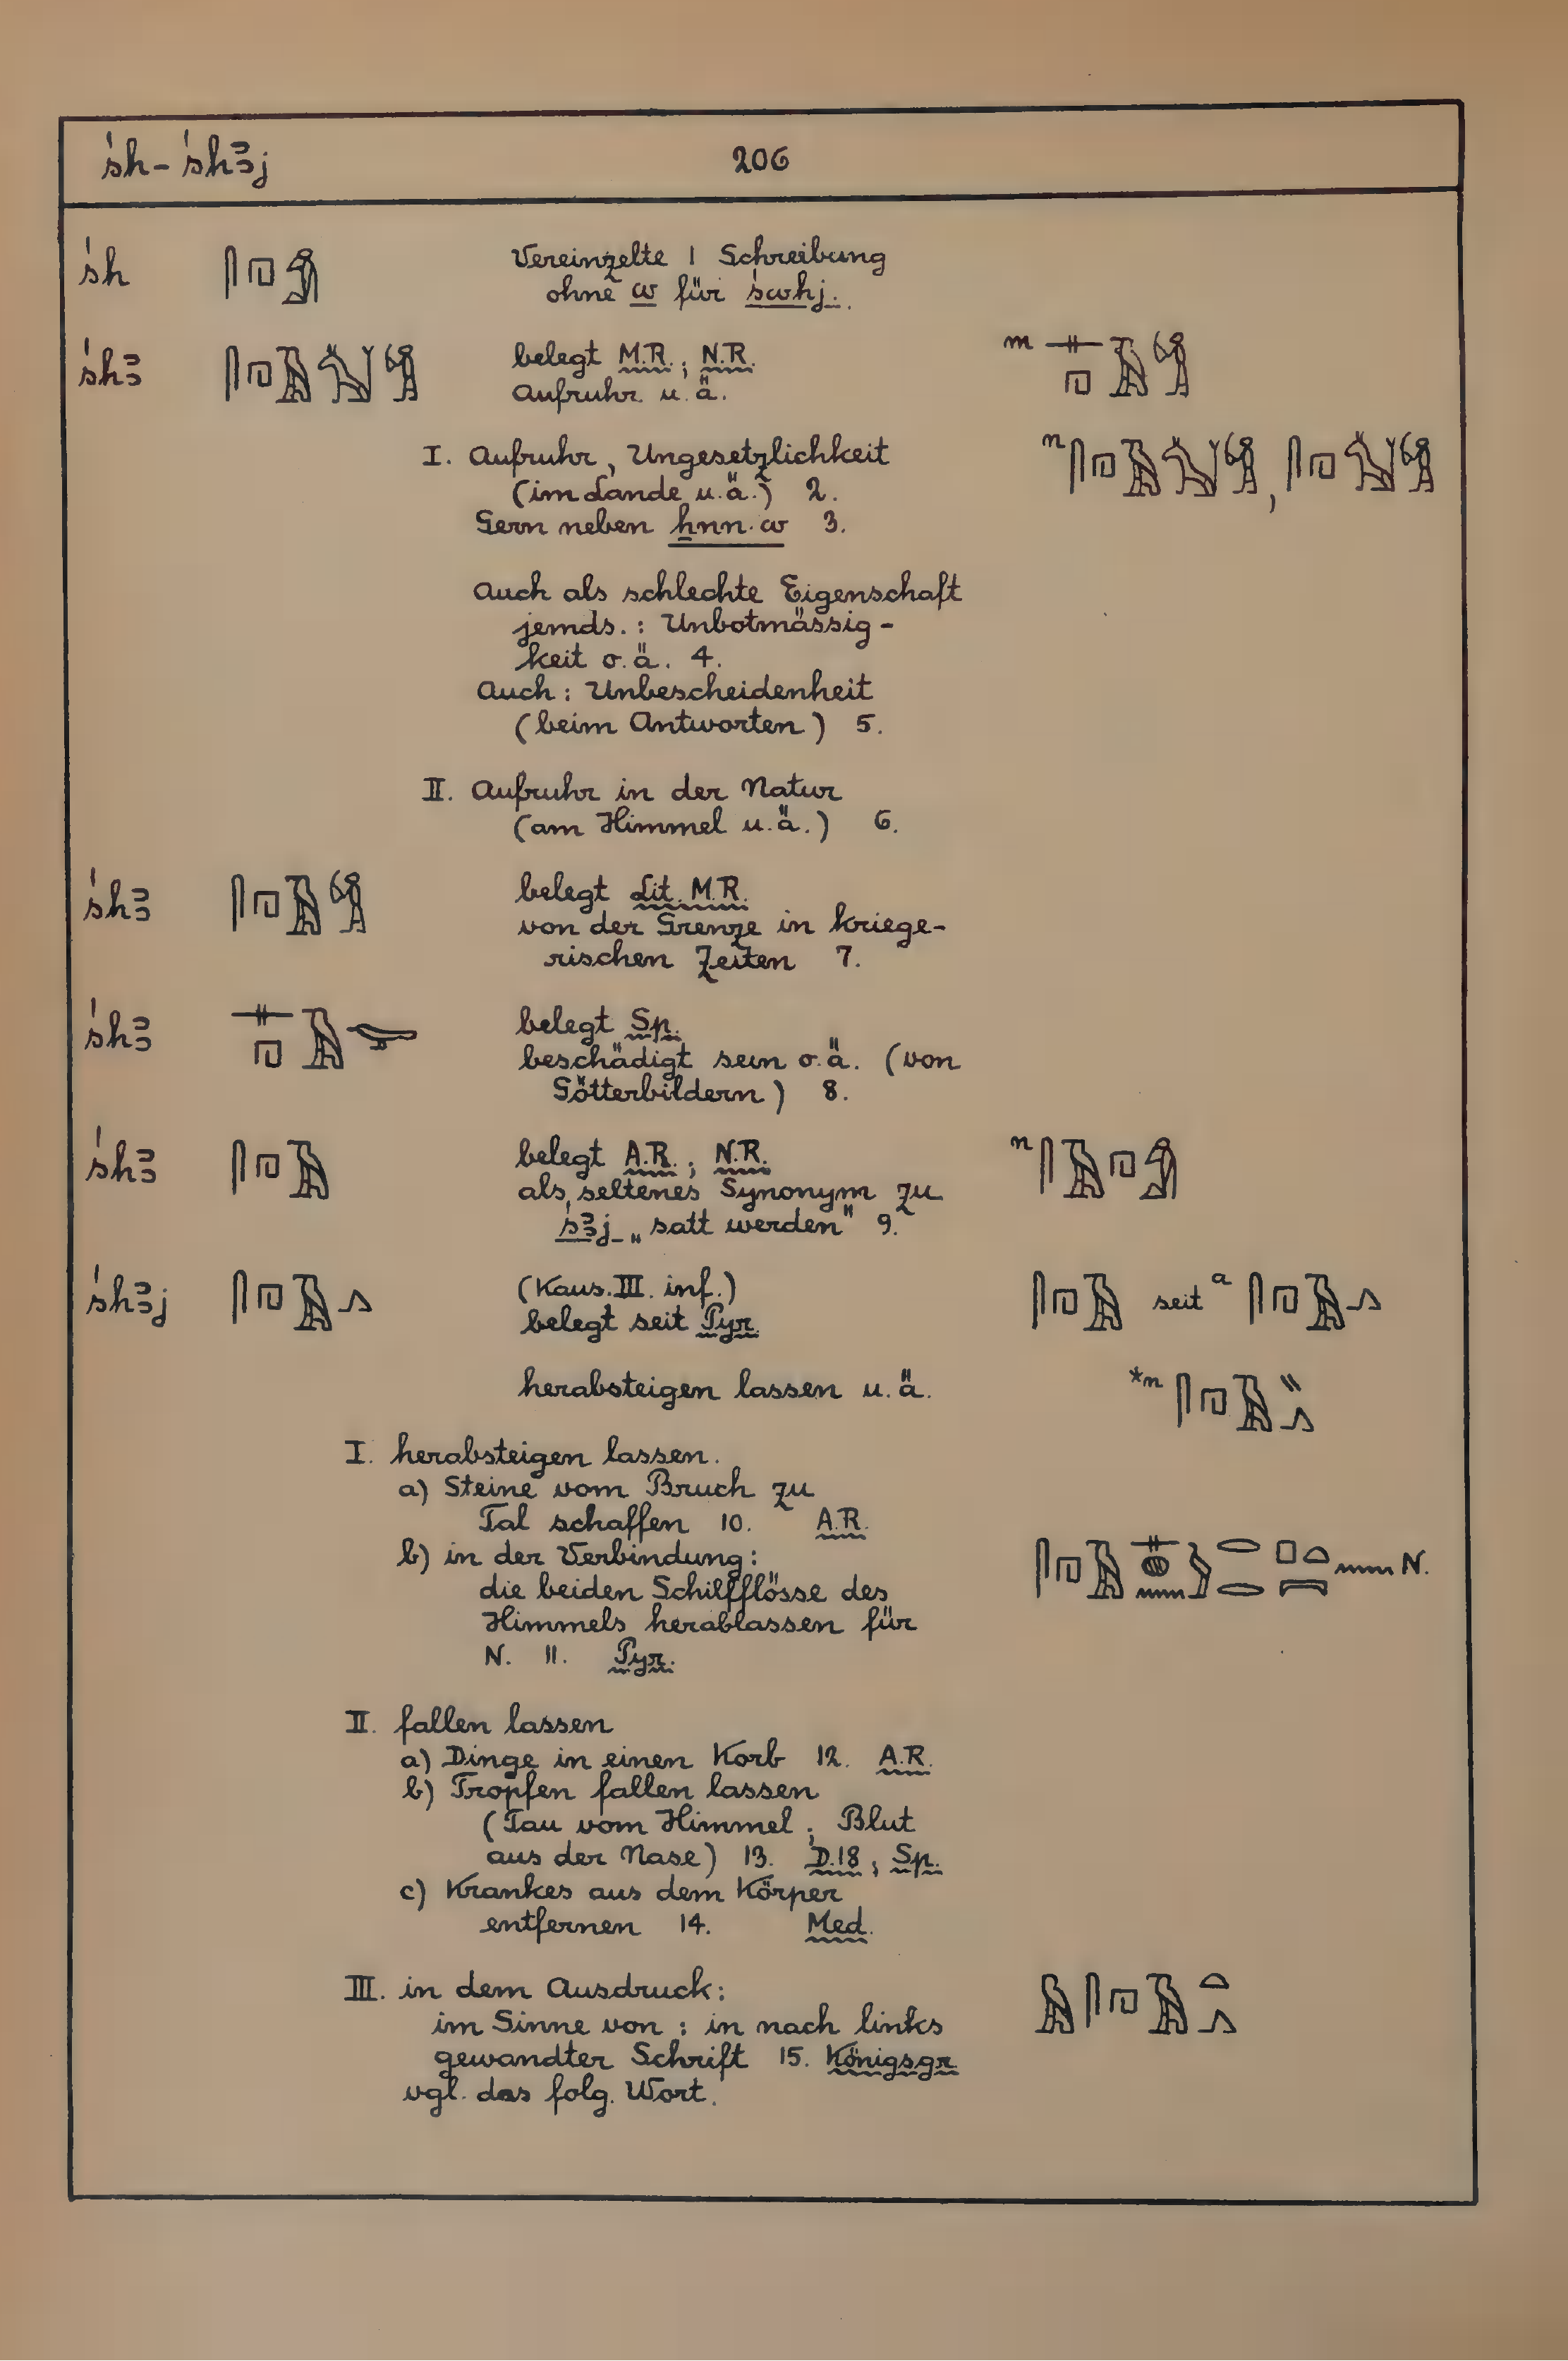 śh - śhꜣj 206
śh 𓋴𓉔𓀁 Vereinzelte 1 Schreibung
ohne w für śwhj.
śhꜣ belegt M.R.; N.R.
Aufruhr u. ä.
I. Aufruhr, Ungesetzlichkeit
(im Lande u. ä.) 2.
Gern neben ẖnn.w 3.
Auch als schlechte Eigenschaft
jemds.: Unbotmässig-
keit o. ä. 4.
Auch: Unbescheidenheit
(beim Antworten) 5.
II. Aufruhr in der Natur
(am Himmel u. ä.) 6.
śhꜣ belegt Lit. M.R.
von der Grenze in kriege-
rischen Zeiten 7.
śhꜣ belegt Sp.
beschädigt sein o. ä. (von
Götterbildern) 8.
śhꜣ 𓋴𓉔𓄿 belegt A.R.; N.R. n 𓋴𓄿𓉔𓀁
als seltenes Synonym zu
śꜣj „satt werden" 9.
śhꜣj 𓋴𓉔𓄿𓂻 (Kaus. III. inf.)
belegt seit Pyr. 𓋴𓉔𓄿 seit a 𓋴𓉔𓄿𓂻
herabsteigen lassen u. ä. *n 𓋴𓉔𓄿𓏭𓂻
I. herabsteigen lassen.
a) Steine vom Bruch zu
Tal schaffen 10. A.R.
b) in der Verbindung: N.
die beiden Schilfflösse des
Himmels herablassen für
N. 11. Pyr.
II. fallen lassen
a) Dinge in einen Korb 12. A.R.
b) Tropfen fallen lassen
(Tau vom Himmel; Blut
aus der Nase) 13. D.18; Sp.
c) Krankes aus dem Körper
entfernen 14. Med.
III. in dem Ausdruck: 𓅓𓋴𓉔𓄿𓏏𓂻
im Sinne von: in nach links
gewandter Schrift 15. Königsgr.
vgl. das folg. Wort.